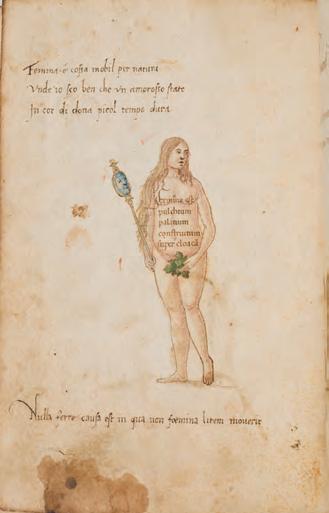 Femina é cosa mobil per natura
Vnde io sco ben che vn amoroso stato
In cor di dona picol tempo dura
femina est
pulchrum
palatium
constructum
super cloacā
Nulla ferre causa est in qua non foemina litem moverit